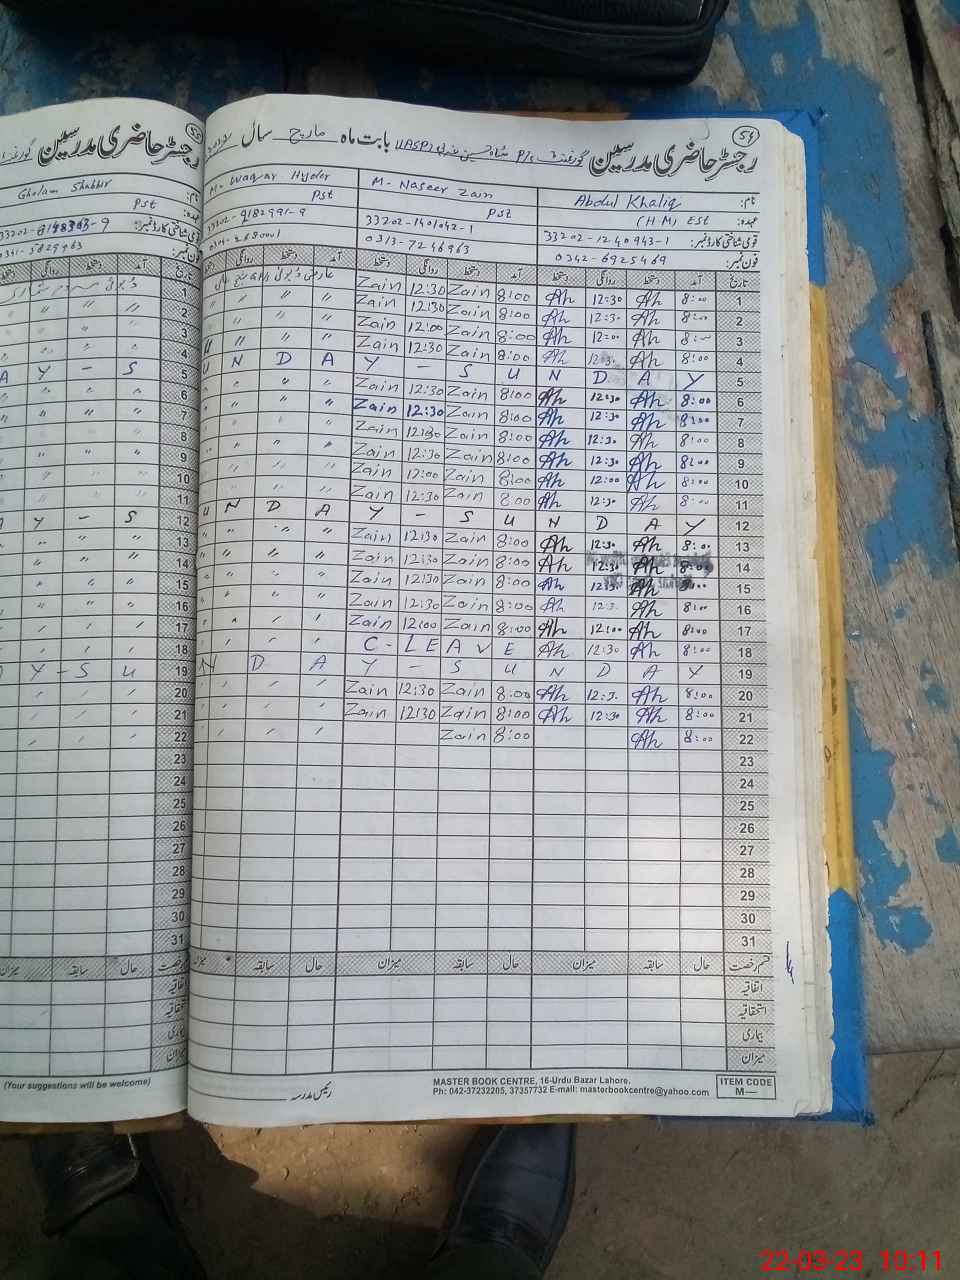 رجسٹر حاضری مدرسین گورنمنٹ P/S شاہ حسین (IASP) بابت ماہ مارچ سال 54
نام: Abdul Khaliq M- Naseer Zain M- Waqar Hyder Gholam Shabbir
عہدہ: (HM) EST Pst Pst Pst
قومی شناختی کارڈ نمبر: 33202-1240943-1 33202-1401042-1 33202-9182991-9
فون نمبر: 0342-6925469 0313-7246963
تاریخ آمد دستخط روانگی دستخط آمد دستخط روانگی دستخط آمد دستخط روانگی دستخط
1 8:00 Ah 12:30 Ah 8:00 Zain 12:30 Zain
2 8:00 Ah 12:30 Ah 8:00 Zain 12:30 Zain " " "
3 8:00 Ah 12:00 Ah 8:00 Zain 12:00 Zain " " "
4 8:00 Ah 12:30 Ah 8:00 Zain 12:30 Zain " " "
5 S U N D A Y - S U N D A Y
6 8:00 Ah 12:30 Ah 8:00 Zain 12:30 Zain " " "
7 8:00 Ah 12:30 Ah 8:00 Zain 12:30 Zain " " "
8 8:00 Ah 12:30 Ah 8:00 Zain 12:30 Zain " " "
9 8:00 Ah 12:30 Ah 8:00 Zain 12:30 Zain " " "
10 8:00 Ah 12:00 Ah 8:00 Zain 12:00 Zain " " "
11 8:00 Ah 12:30 Ah 8:00 Zain 12:30 Zain " " "
12 S U N D A Y - S U N D A Y
13 8:00 Ah 12:30 Ah 8:00 Zain 12:30 Zain " " "
14 8:00 Ah 12:30 Ah 8:00 Zain 12:30 Zain " " "
15 8:00 Ah 12:30 Ah 8:00 Zain 12:30 Zain " " "
16 8:00 Ah 12:30 Ah 8:00 Zain 12:30 Zain " " "
17 8:00 Ah 12:00 Ah 8:00 Zain 12:00 Zain " " "
18 8:00 Ah 12:30 Ah C-LEAVE " " "
19 S U N D A Y - S U N D A Y
20 8:00 Ah 12:30 Ah 8:00 Zain 12:30 Zain " " "
21 8:00 Ah 12:30 Ah 8:00 Zain 12:30 Zain " " "
22 8:00 Ah 8:00 Zain " " "
23
24
25
26
27
28
29
30
31
قسم رخصت حال سابقہ میزان حال سابقہ میزان حال سابقہ
اتفاقیہ
استحقاقیہ
بیماری
میزان
رئیس مدرسہ
(Your suggestions will be welcome)
MASTER BOOK CENTRE, 16-Urdu Bazar Lahore.
Ph: 042-37232205, 37357732 E-mail: masterbookcentre@yahoo.com
ITEM CODE
M—
22-03-23 10:11